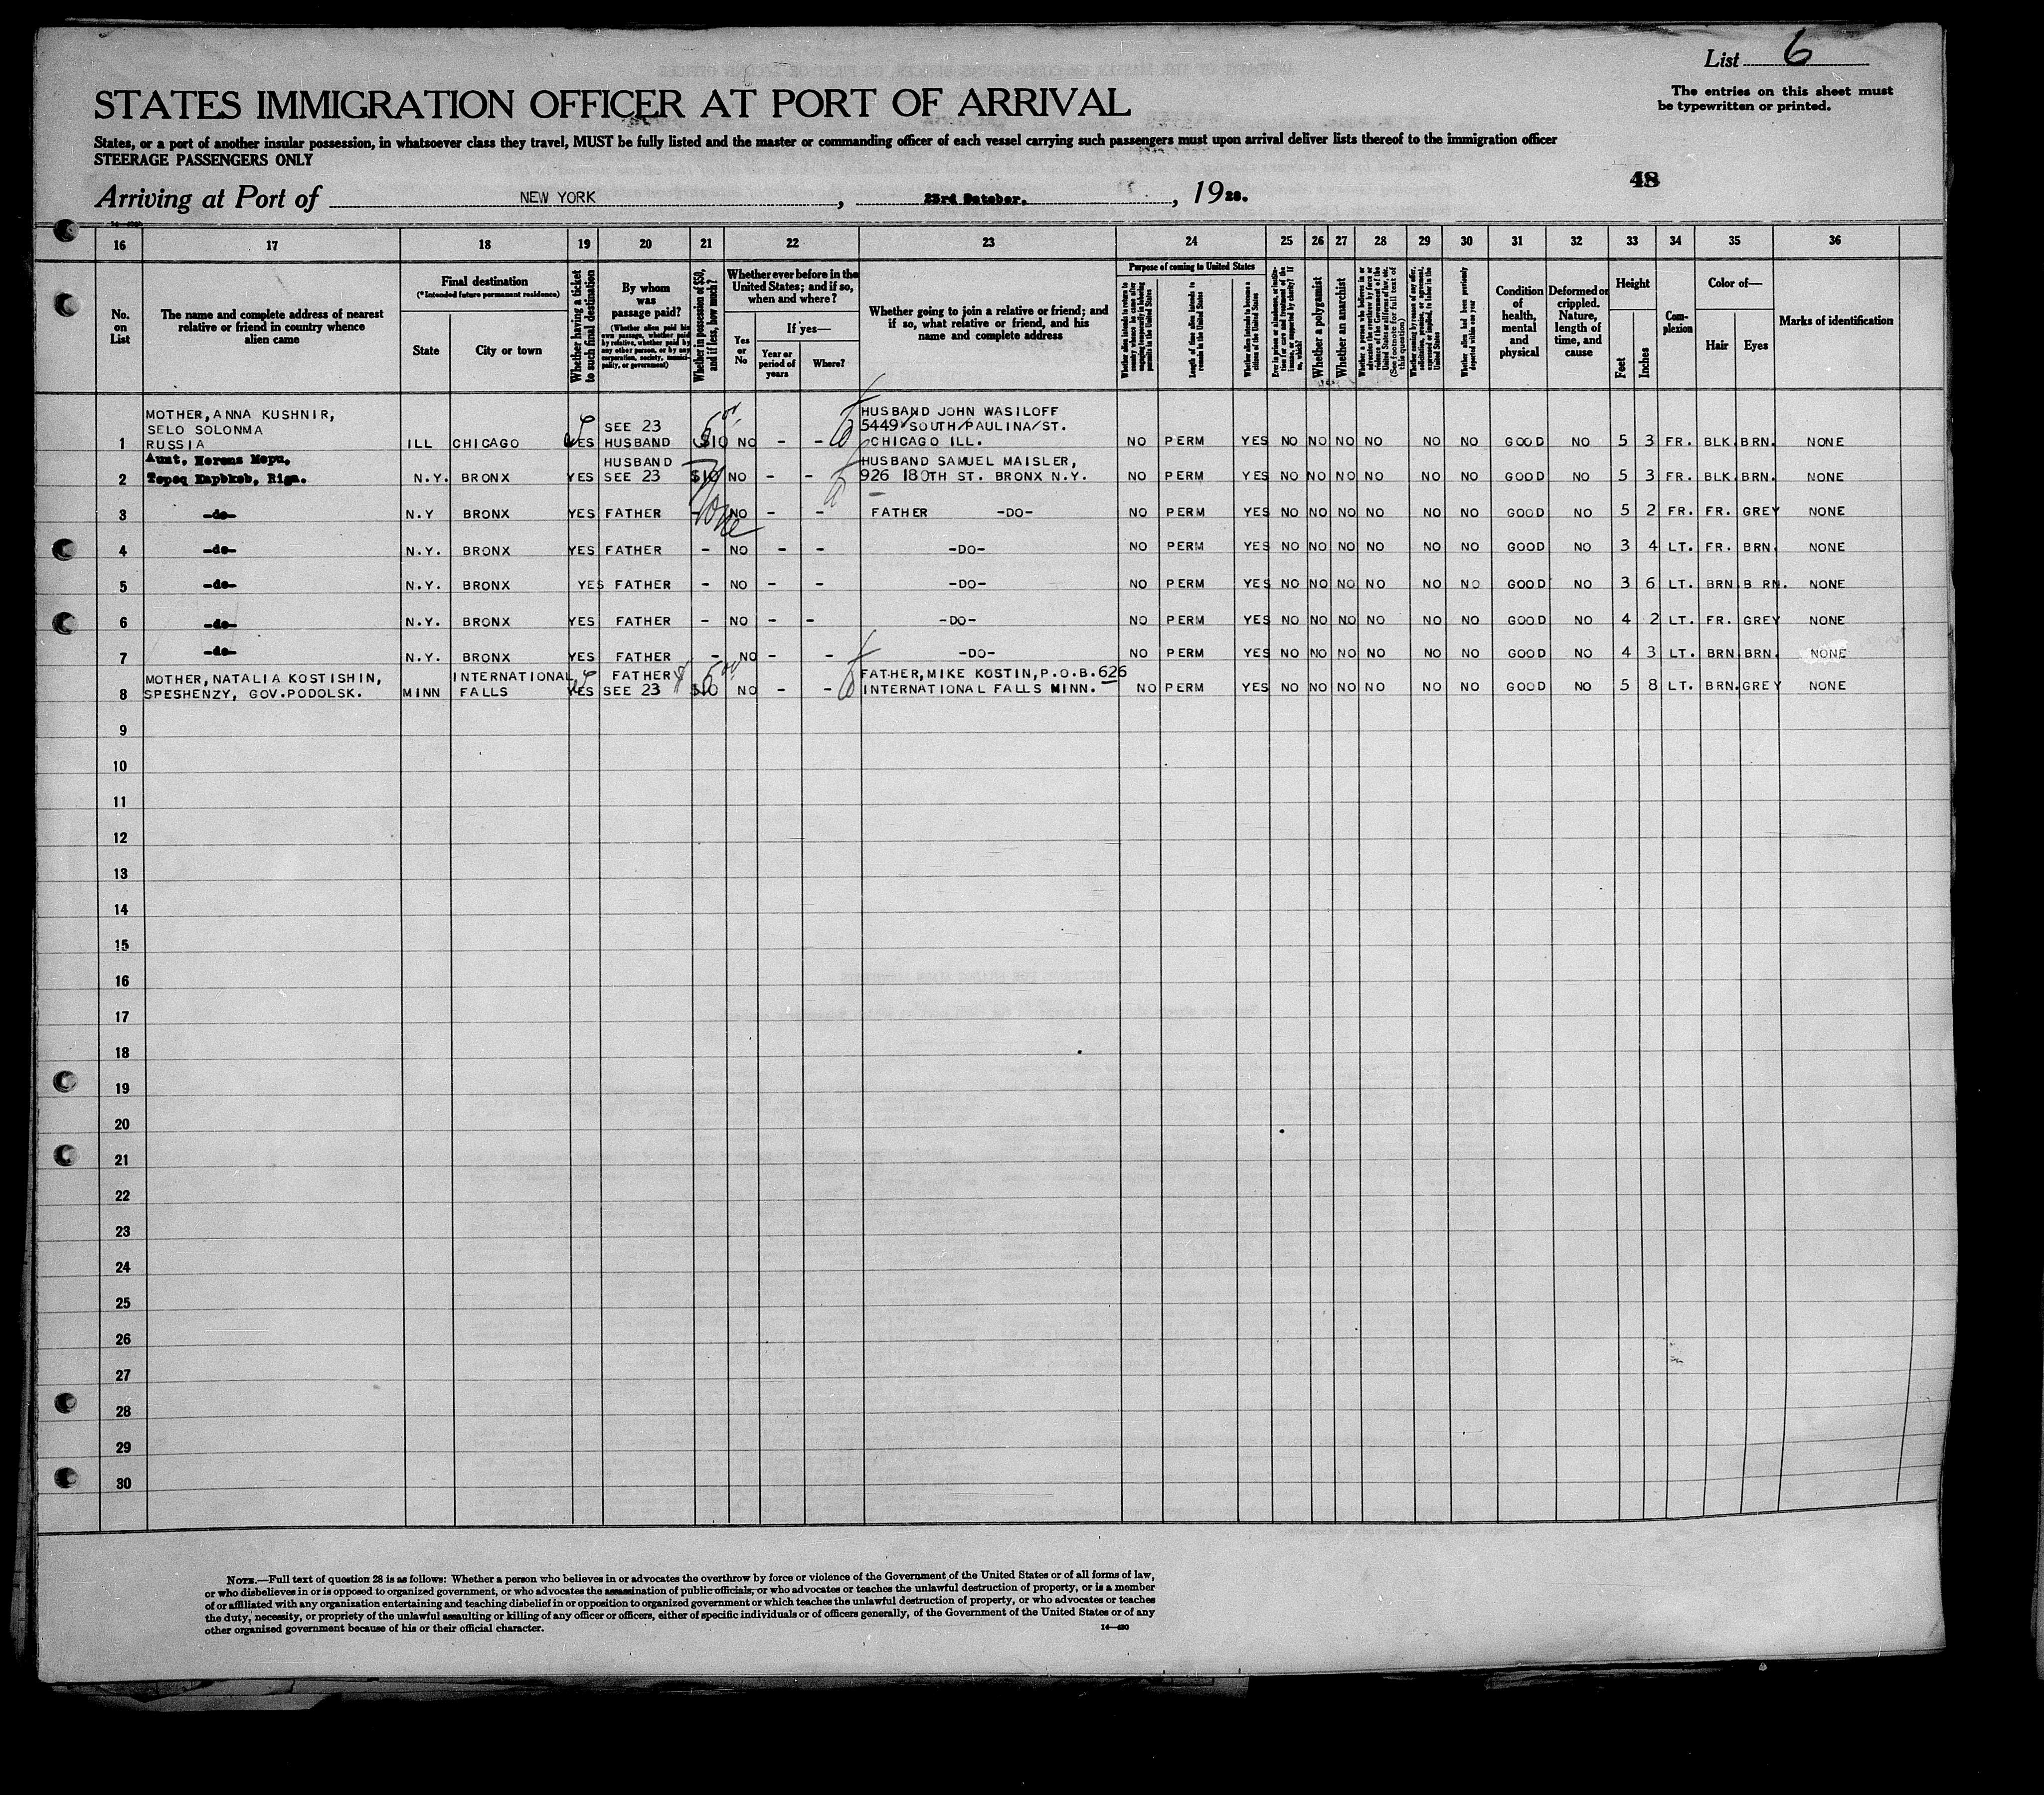 List 6
The entries on this sheet must
be typewritten or printed.
STATES IMMIGRATION OFFICER AT PORT OF ARRIVAL
States, or a port of another insular possession, in whatsoever class they travel, MUST be fully listed and the master or commanding officer of each vessel carrying such passengers must upon arrival deliver lists thereof to the immigration officer
STEERAGE PASSENGERS ONLY
48
Arriving at Port of NEW YORK, 23rd October., 1928.
16 17 18 19 20 21 22 23 24 25 26 27 28 29 30 31 32 33 34 35 36
No. on List
The name and complete address of nearest
relative or friend in country whence
alien came
Final destination
(*Intended future permanent residence)
State
City or town
Whether having a ticket
to such final destination
By whom
was
passage paid?
(Whether alien paid his
own passage, whether paid
by relative, whether paid by
any other person, or by any
corporation, society, munici-
pality, or government)
Whether in possession of $50,
and if less, how much?
Whether ever before in the
United States; and if so,
when and where?
Yes or No
If yes—
Year or period of years
Where?
Whether going to join a relative or friend; and
if so, what relative or friend, and his
name and complete address
Purpose of coming to United States
Length of time alien intends to
remain in the United States
Whether alien intends to become a
citizen of the United States
Whether a polygamist
Whether an anarchist
Condition of health, mental and physical
Deformed or crippled. Nature, length of time, and cause
Height
Feet
Inches
Com-
plexion
Color of—
Hair
Eyes
Marks of identification
MOTHER, ANNA KUSHNIR,
SELO SOLONMA
RUSSIA
1 ILL CHICAGO YES SEE 23 HUSBAND $10 NO - - HUSBAND JOHN WASILOFF
5449 SOUTH PAULINA ST.
CHICAGO ILL. NO PERM YES NO NO NO NO NO NO GOOD NO 5 3 FR. BLK. BRN. NONE
Aunt,
Riga.
2 N.Y. BRONX YES HUSBAND SEE 23 $10 NO - - HUSBAND SAMUEL MAISLER,
926 180TH ST. BRONX N.Y. NO PERM YES NO NO NO NO NO NO GOOD NO 5 3 FR. BLK. BRN. NONE
3 -do- N.Y BRONX YES FATHER - None NO - - FATHER -DO- NO PERM YES NO NO NO NO NO NO GOOD NO 5 2 FR. FR. GREY NONE
4 -do- N.Y. BRONX YES FATHER - NO - - -DO- NO PERM YES NO NO NO NO NO NO GOOD NO 3 4 LT. FR. BRN. NONE
5 -do- N.Y. BRONX YES FATHER - NO - - -DO- NO PERM YES NO NO NO NO NO NO GOOD NO 3 6 LT. BRN. B RN. NONE
6 -do- N.Y. BRONX YES FATHER - NO - - -DO- NO PERM YES NO NO NO NO NO NO GOOD NO 4 2 LT. FR. GREY NONE
7 -do- N.Y. BRONX YES FATHER - NO - - -DO- NO PERM YES NO NO NO NO NO NO GOOD NO 4 3 LT. BRN. BRN. NONE
MOTHER, NATALIA KOSTISHIN,
SPESHENZY, GOV.PODOLSK.
8 MINN INTERNATIONAL FALLS YES FATHER SEE 23 $10 NO - - FATHER, MIKE KOSTIN, P.O.B. 626
INTERNATIONAL FALLS MINN. NO PERM YES NO NO NO NO NO NO GOOD NO 5 8 LT. BRN. GREY NONE
9
10
11
12
13
14
15
16
17
18
19
20
21
22
23
24
25
26
27
28
29
30
NOTE.—Full text of question 28 is as follows: Whether a person who believes in or advocates the overthrow by force or violence of the Government of the United States or of all forms of law,
or who disbelieves in or is opposed to organized government, or who advocates the assassination of public officials, or who advocates or teaches the unlawful destruction of property, or is a member
of or affiliated with any organization entertaining and teaching disbelief in or opposition to organized government or which teaches the unlawful destruction of property, or who advocates or teaches
the duty, necessity, or propriety of the unlawful assaulting or killing of any officer or officers, either of specific individuals or of officers generally, of the Government of the United States or of any
other organized government because of his or their official character.
14—430